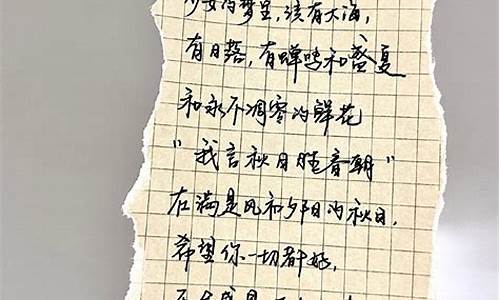 少女的梦里,该有大海,
有日落,有蝉鸣和盛夏
和永不凋零的鲜花
"我言秋日胜春朝"
在满是风和夕阳的秋日,
希望你一切都好,